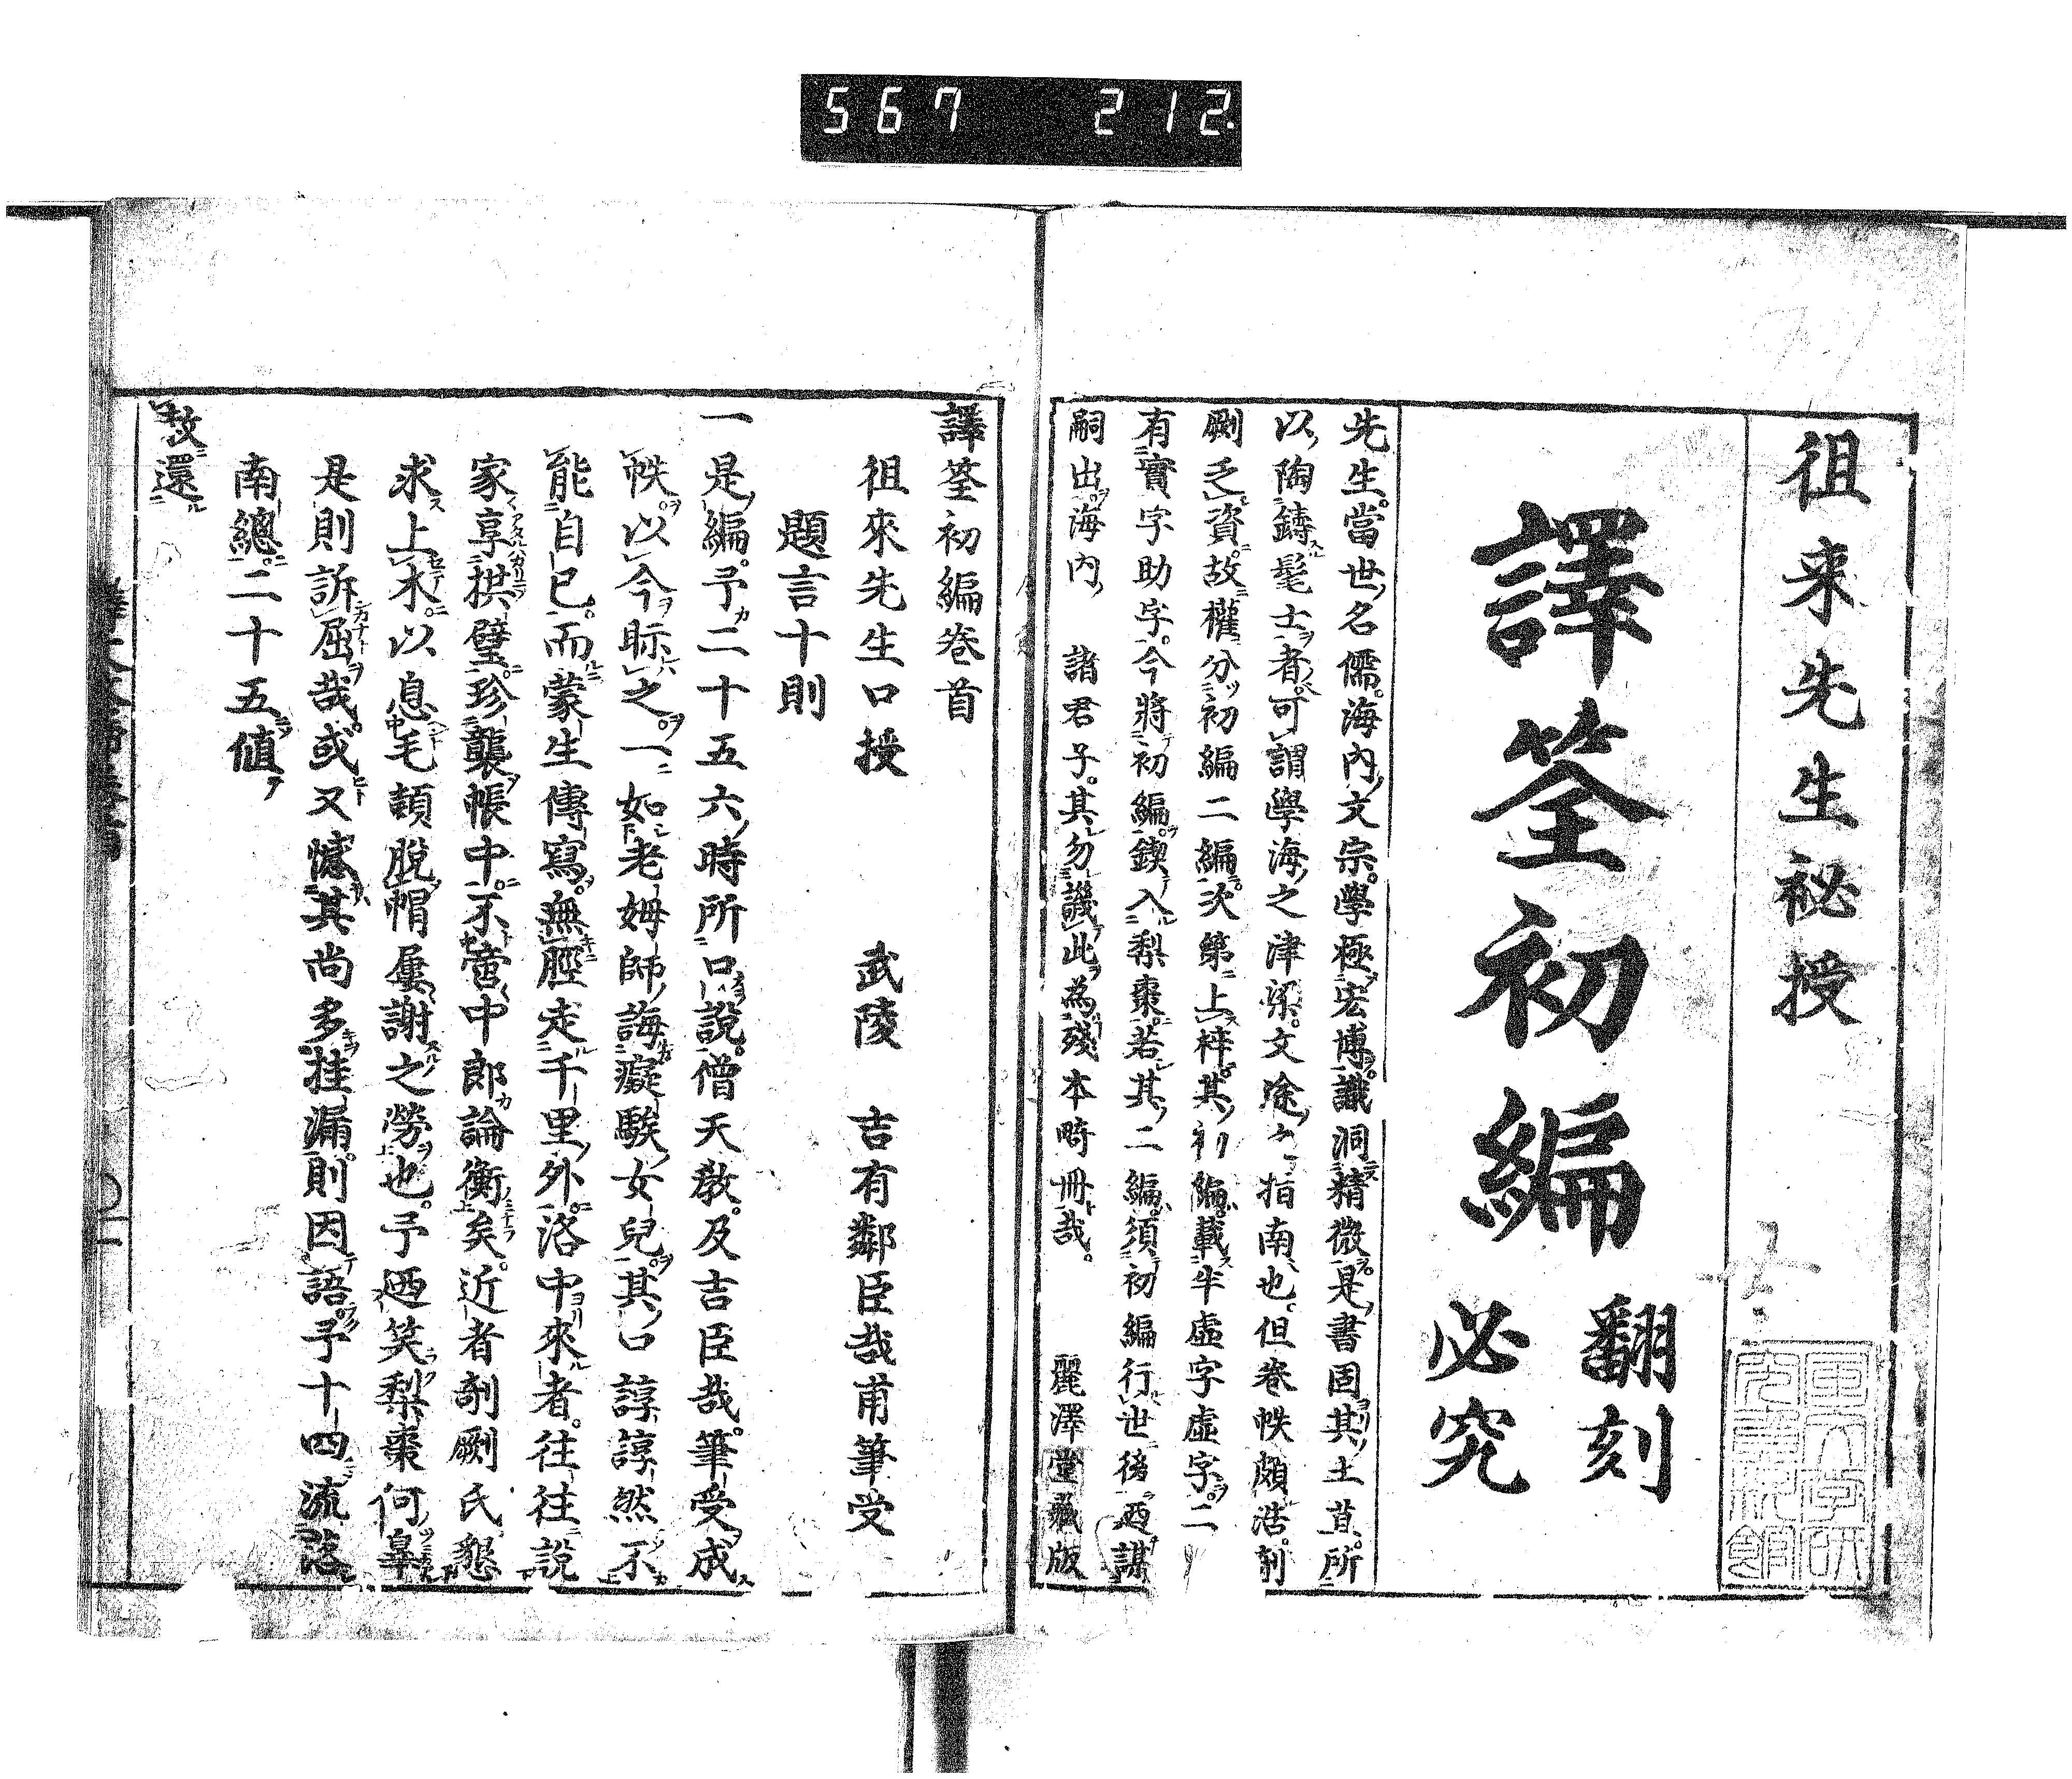 567 212
祖来先生祕授
譯筌初編
翻刻
必究
先生當世名儒海内文宗學極宏博識洞精微是書固其土苴所
以陶鑄髦士者可謂學海之津梁文途之指南也但卷帙頗浩剞
劂乏資故權分初編二編次第上梓其初編載半虚字虚字二
有實字助字今將初編鍥入梨棗若其二編須初編行世後迺謀
嗣出海内 諸君子其勿譏此為殘本畸冊哉 麗澤堂藏版
譯筌初編卷首
徂來先生口授 武陵 吉有鄰臣哉甫筆受
題言十則
一是編予二十五六時所口說僧天教及吉臣哉筆受成
帙以今眎之一如老姆師誨癡騃女兒其口諄諄然不
能自已而蒙生傳寫無脛走千里外洛中來者往往說
家享拱璧珍襲帳中不啻中郎論衡矣近者剞劂氏懇
求上木以息毛頴脫帽屢謝之勞也予迺笑梨棗何辜
是則訴屈哉或又憾其尚多挂漏則因語予十四流落
南總二十五値
赦還